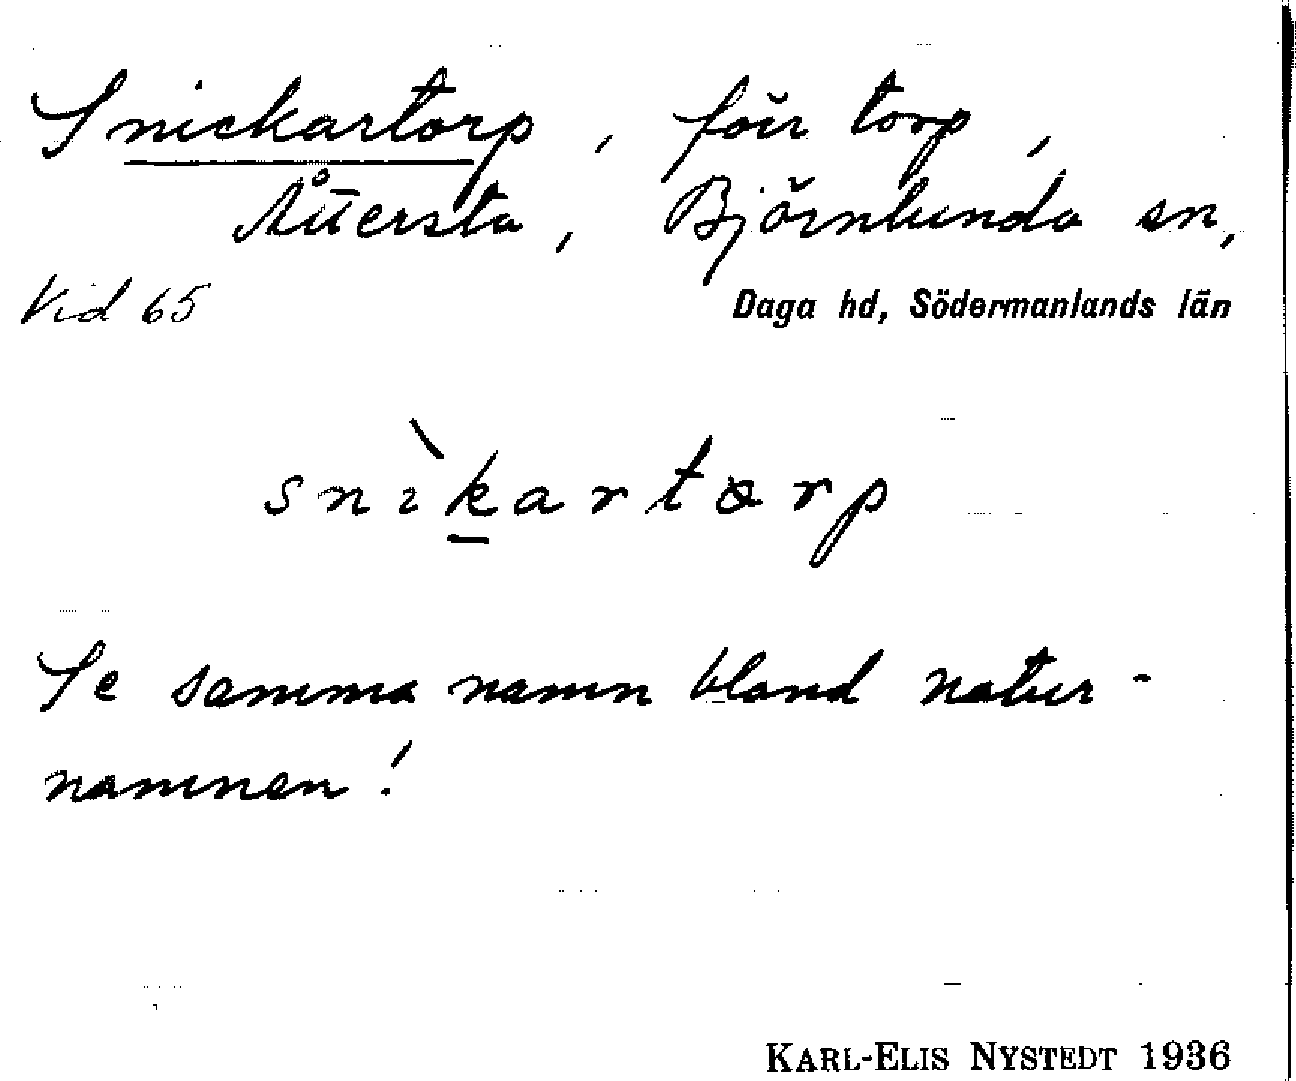 Snickartorp, förr torp,
Åttersta, Björnlunda sn,
Vid 65
Daga hd, Södermanlands län
snìkartorp
Se samma namn bland natur-
namnen!
KARL-ELIS NYSTEDT 1936